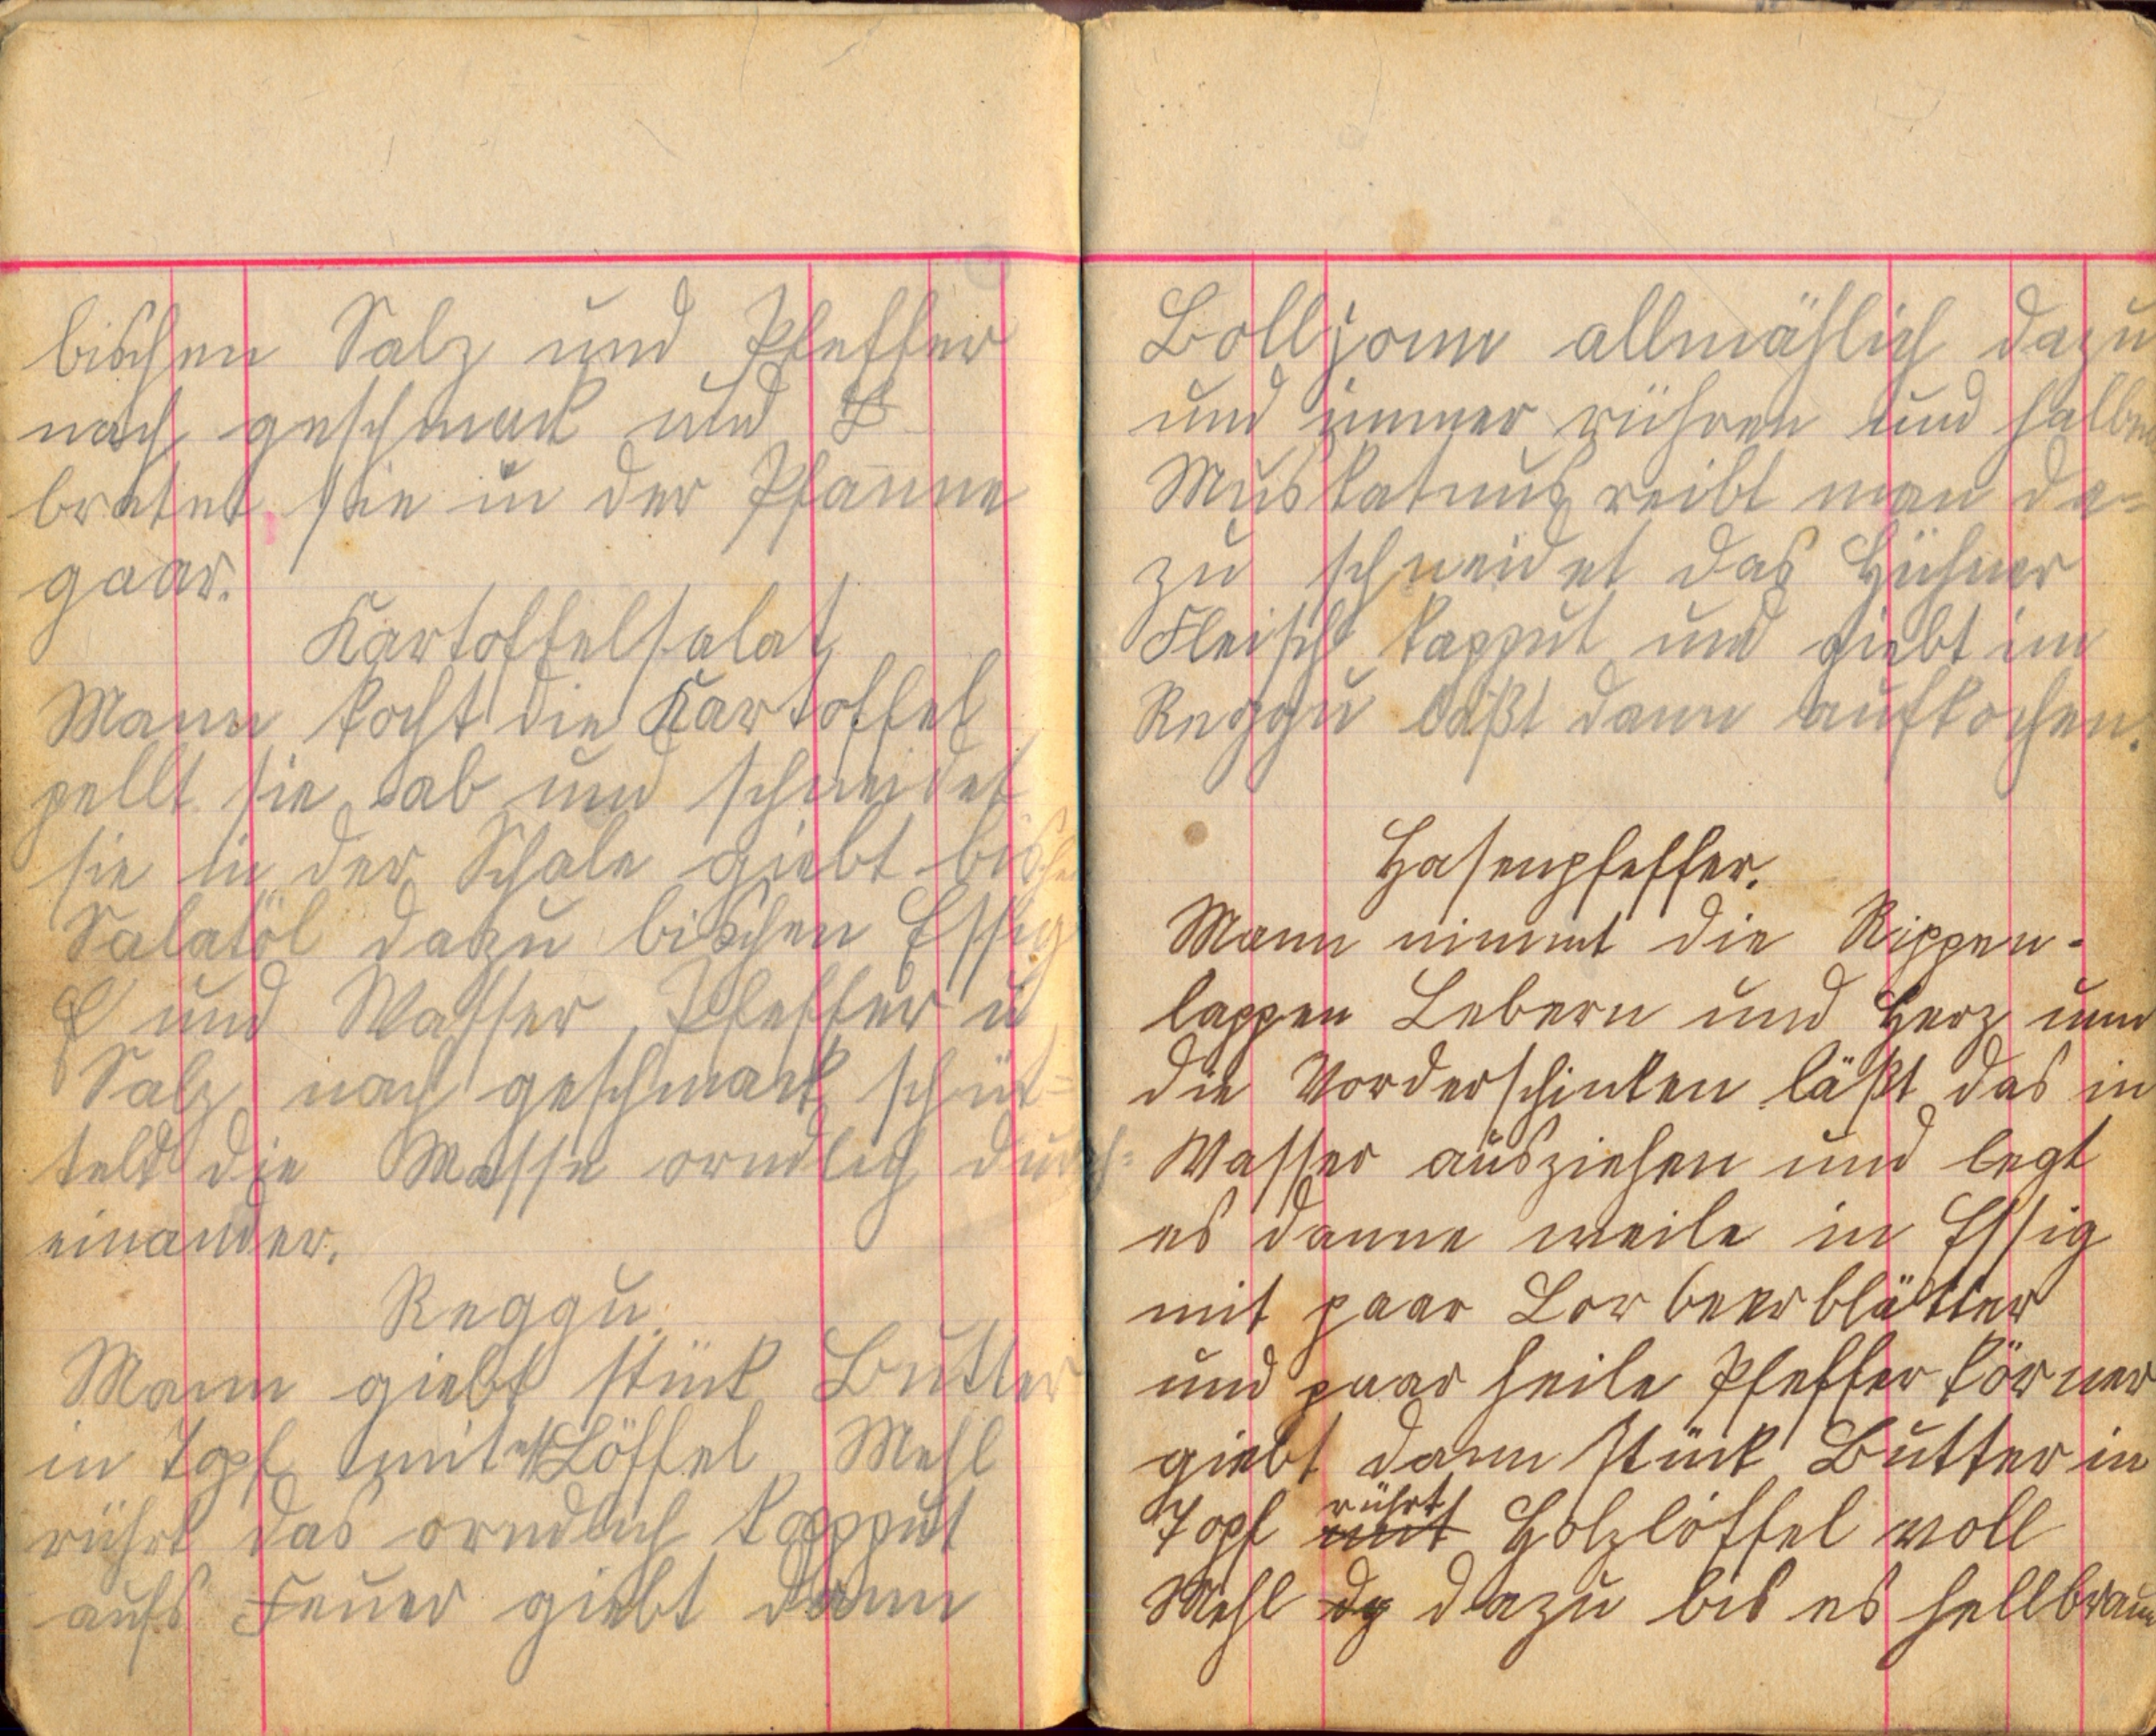 bischen Salz und Pfeffer
nach geschmack und
bratet sie in der Pfanne
gaar.
Kartoffelsalat
Mann kocht die Kartoffel
pellt sie ab und schneidet
sie in der Schale giebt bischen
Salatöl dazu bischen Essig
und Wasser, Pfeffer u
Salz nach geschmack schüt=
telt die Masse orndlich durch=
einander.
Reggu.
Mann giebt stück Butter
in Topf mit Löffel Mehl
rührt das orndlich kapput
aufs Feuer giebt dann
Bolljonn allmählich dazu
und immer rühren und halbe
Muskatnuß reibt man da=
zu schneidet das Hühner
Fleisch kapput und giebt im
Reggu läßt dann aufkochen.
Hasenpfeffer.
Mann nimmt die Rippen-
lappen Lebern und Herz und
die Vorderschinken läßt das in
Wasser ausziehen und legt
es danne weile in Essig
mit paar Lorbeerblätter
und paar heile Pfeffer körner
giebt dann stück Butter in
Topf mit rührt Holzlöffel voll
Mehl dazu bis es hellbraun